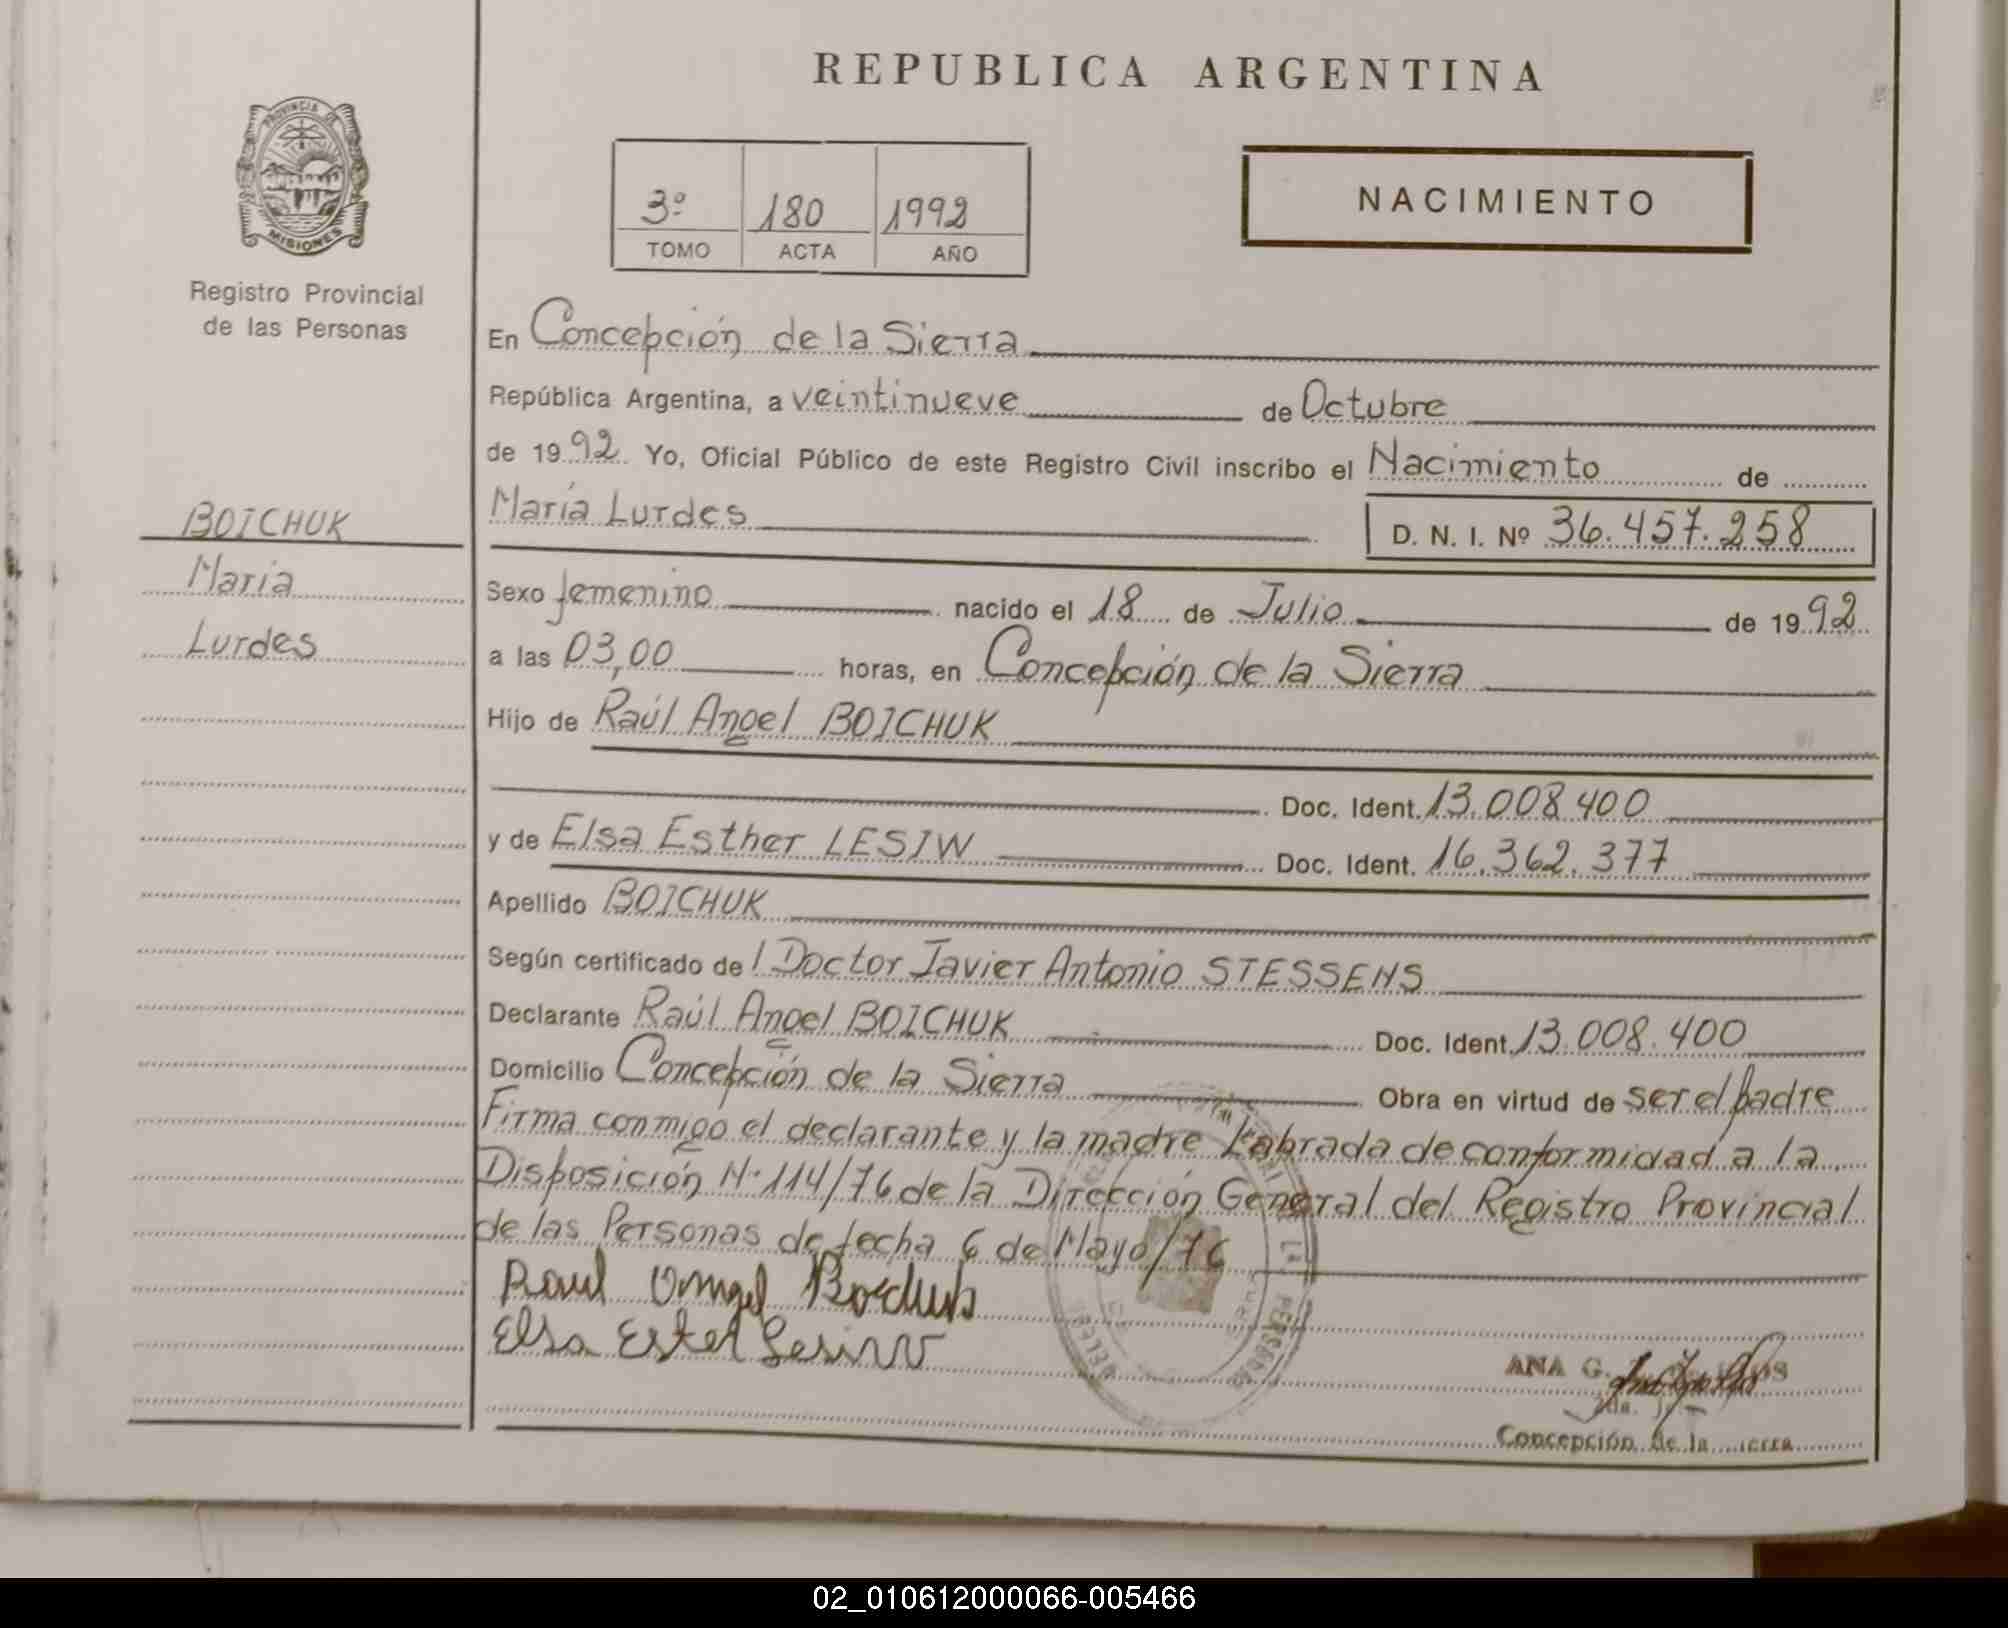 REPUBLICA ARGENTINA
PROVINCIA DE
MISIONES
Registro Provincial
de las Personas
3º 180 1992
TOMO ACTA AÑO
NACIMIENTO
En Concepción de la Sierra
República Argentina, a veintinueve de Octubre
de 1992 Yo, Oficial Público de este Registro Civil inscribo el Nacimiento de
María Lurdes
D. N. I. Nº 36.457.258
BOICHUK
María
Lurdes
Sexo femenino nacido el 18 de Julio de 1992
a las 03,00 horas, en Concepción de la Sierra
Hijo de Raúl Angel BOICHUK
Doc. Ident. 13.008.400
y de Elsa Esther LESIW Doc. Ident. 16.362.377
Apellido BOICHUK
Según certificado del Doctor Javier Antonio STESSENS
Declarante Raúl Angel BOICHUK Doc. Ident. 13.008.400
Domicilio Concepción de la Sierra Obra en virtud de ser el padre
Firma conmigo el declarante y la madre Labrada de conformidad a la
Disposición N·114/76 de la Dirección General del Registro Provincial
de las Personas de fecha 6 de Mayo/76
Raul Angel Boichuk
Elsa Ester Lesiw
ANA G.
Concepción de la
02_010612000066-005466